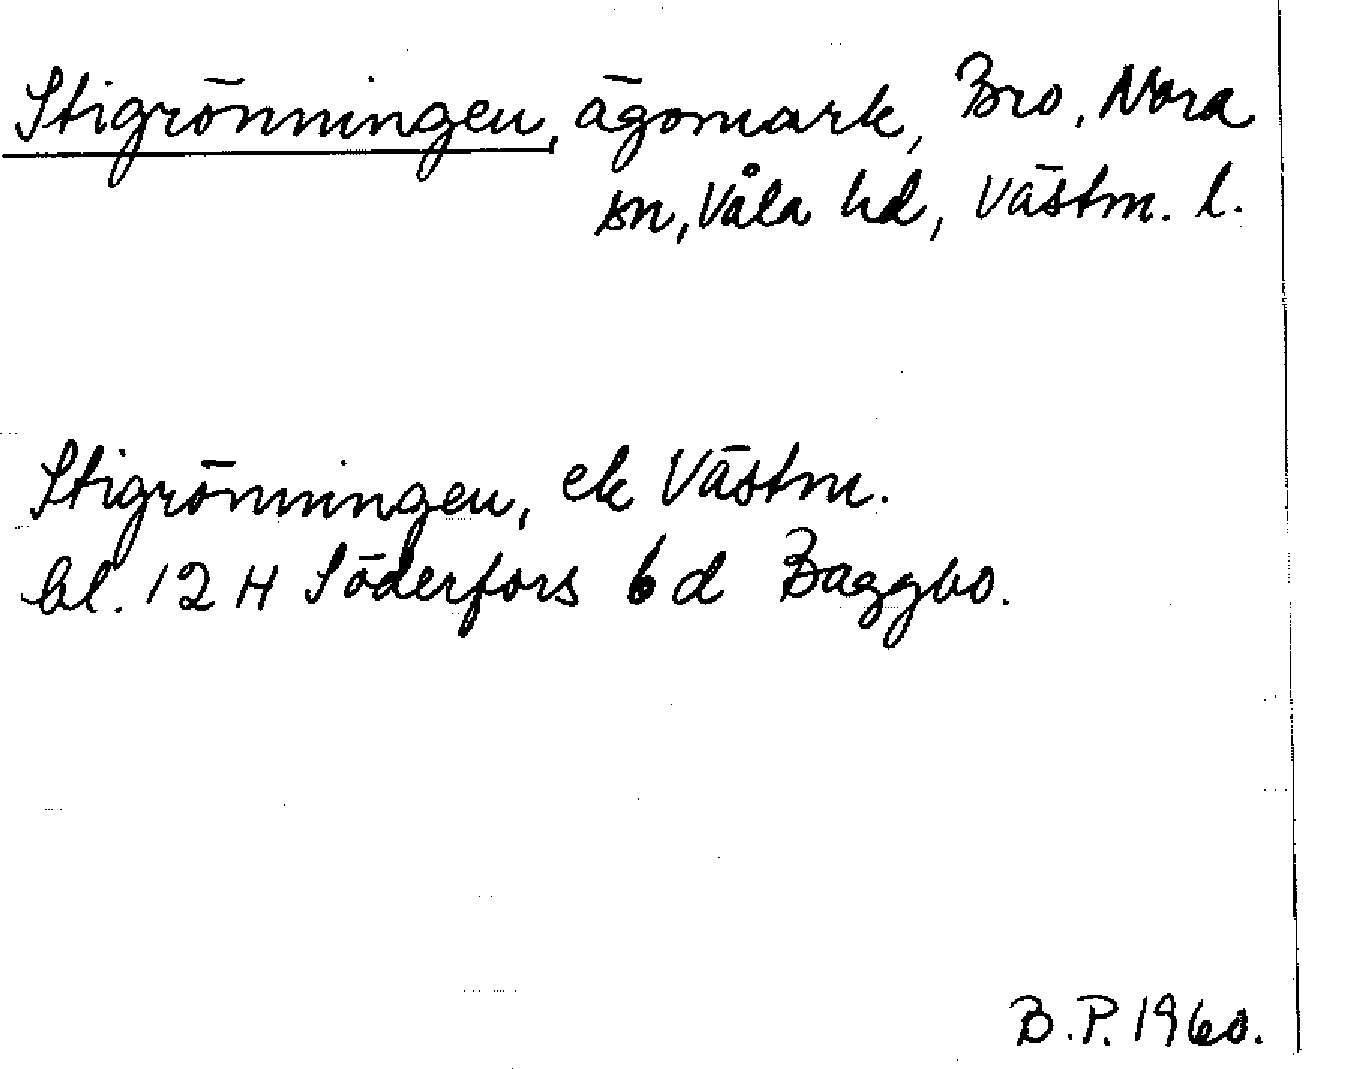 Stigrönningen, ägomark, Bro, Nora
sn, Våla hd, Västm. l.
Stigrönningen, ek Västm.
bl. 12 H Söderfors 6 d Baggbo.
B.P. 1960.